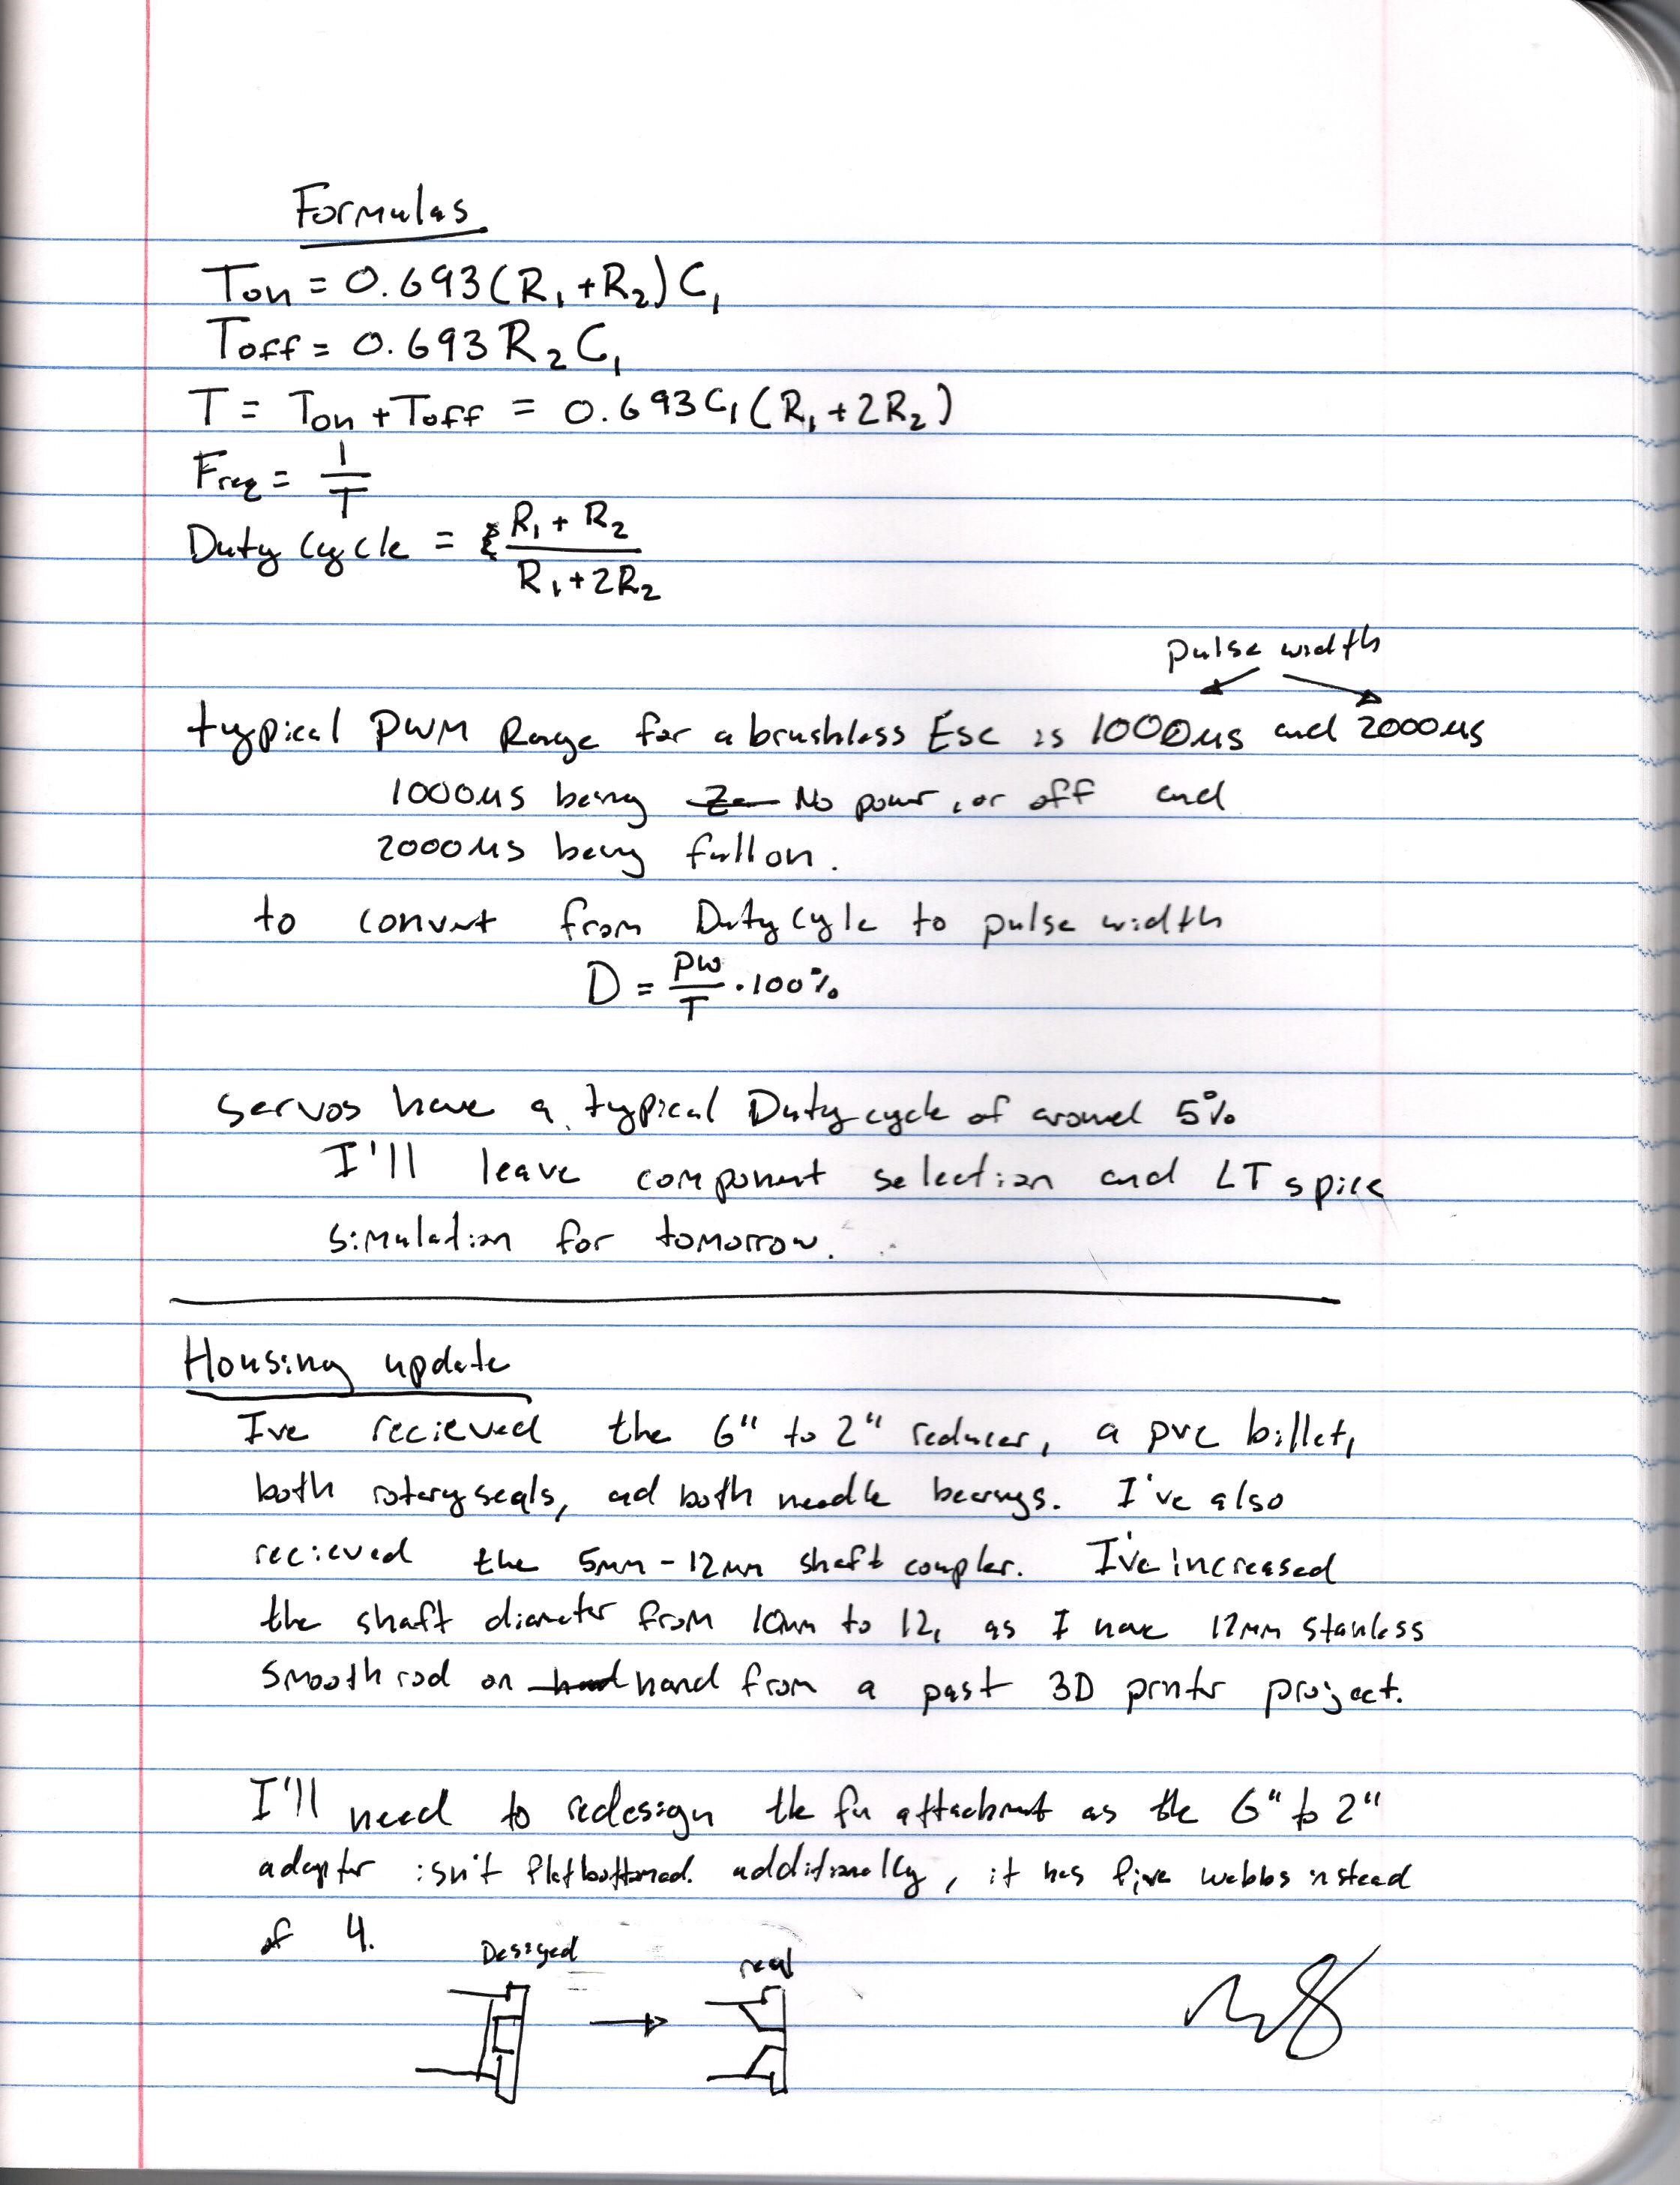 Formulas
Ton = 0.693(R₁+R₂)C₁
Toff = 0.693 R₂C₁
T = Ton + Toff = 0.693C₁(R₁+2R₂)
Freq = 1/T
Duty Cycle = (R₁ + R₂)/(R₁+2R₂)
pulse width
typical PWM Range for a brushless Esc is 1000us and 2000us
1000us being No power, or off and
2000us being full on.
to convert from Duty Cycle to pulse width
D = PW/T · 100%
servos have a typical Duty cycle of around 5%
I'll leave component selection and LT spice
simulation for tomorrow.
Housing update
Ive recieved the 6" to 2" reducer, a pvc billet,
both rotary seals, and both needle bearings. I've also
recieved the 5mm-12mm shaft coupler. I've increased
the shaft diameter from 10mm to 12, as I have 12mm stanless
smooth rod on hand from a past 3D printer project.
I'll need to redesign the fin attachment as the 6" to 2"
adapter isn't flat bottomed. additionally, it has five webbs instead
of 4.
Desiged real